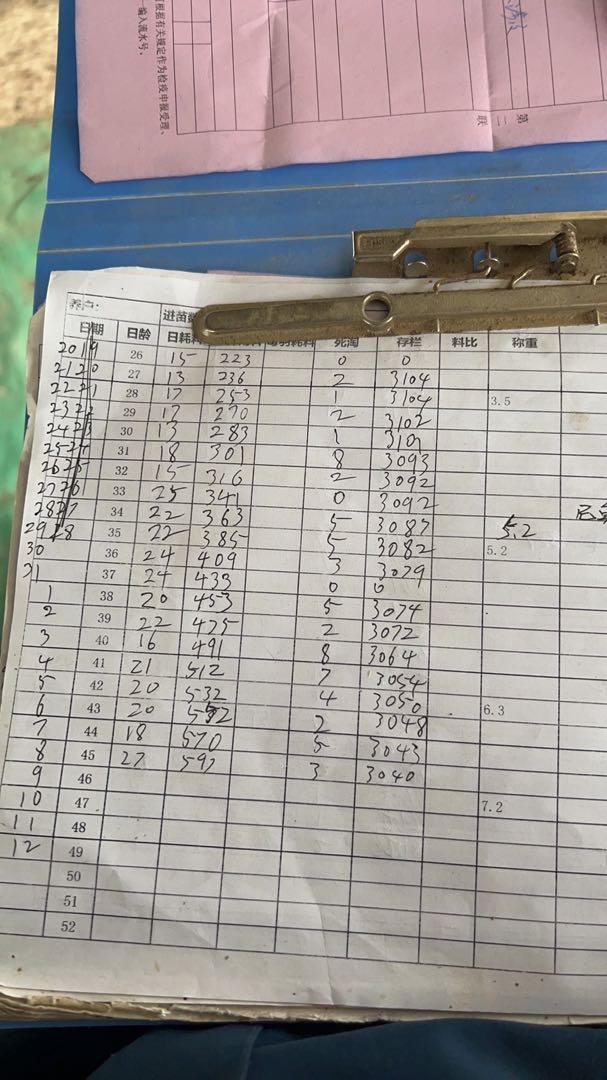 可根据有关规定作为检疫申报受理、
一编入流水号、
第二联
养户:
进苗数
日期 日龄 日耗料 死淘 存栏 料比 称重
19 26 15 223 0 0
20 27 13 236 2 3104
21 28 17 253 1 3104 3.5
22 29 17 270 2 3102
23 30 13 283 1 3101
24 31 18 301 8 3093
25 32 15 316 2 3092
26 33 25 341 0 3092
27 34 22 363 5 3087 5.2
28 35 22 385 5 3082 5.2
30 36 24 409 3 3079
31 37 24 433 0 0
1 38 20 453 5 3074
2 39 22 475 2 3072
3 40 16 491 8 3064
4 41 21 512 7 3054
5 42 20 532 4 3050
6 43 20 552 2 3048 6.3
7 44 18 570 5 3043
8 45 27 597 3 3040
9 46
10 47 7.2
11 48
12 49
50
51
52